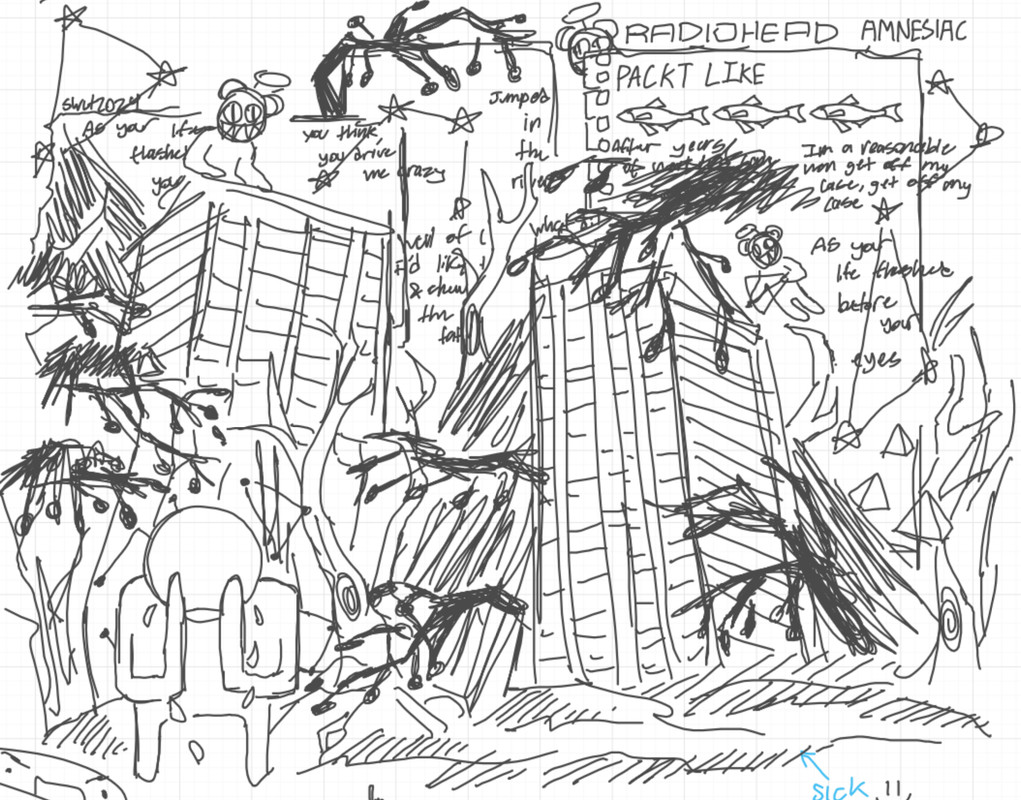 RADIOHEAD AMNESIAC
PACKT LIKE
swrt2024
As your life
flashes
you
you think
you drive
me crazy
Jumped
in
the
river
After years
of
what
I'm a reasonable
man get off my
case, get off my
case
well of
I'd like
& chew
the
fat
As your
life flashes
before
your
eyes
sick